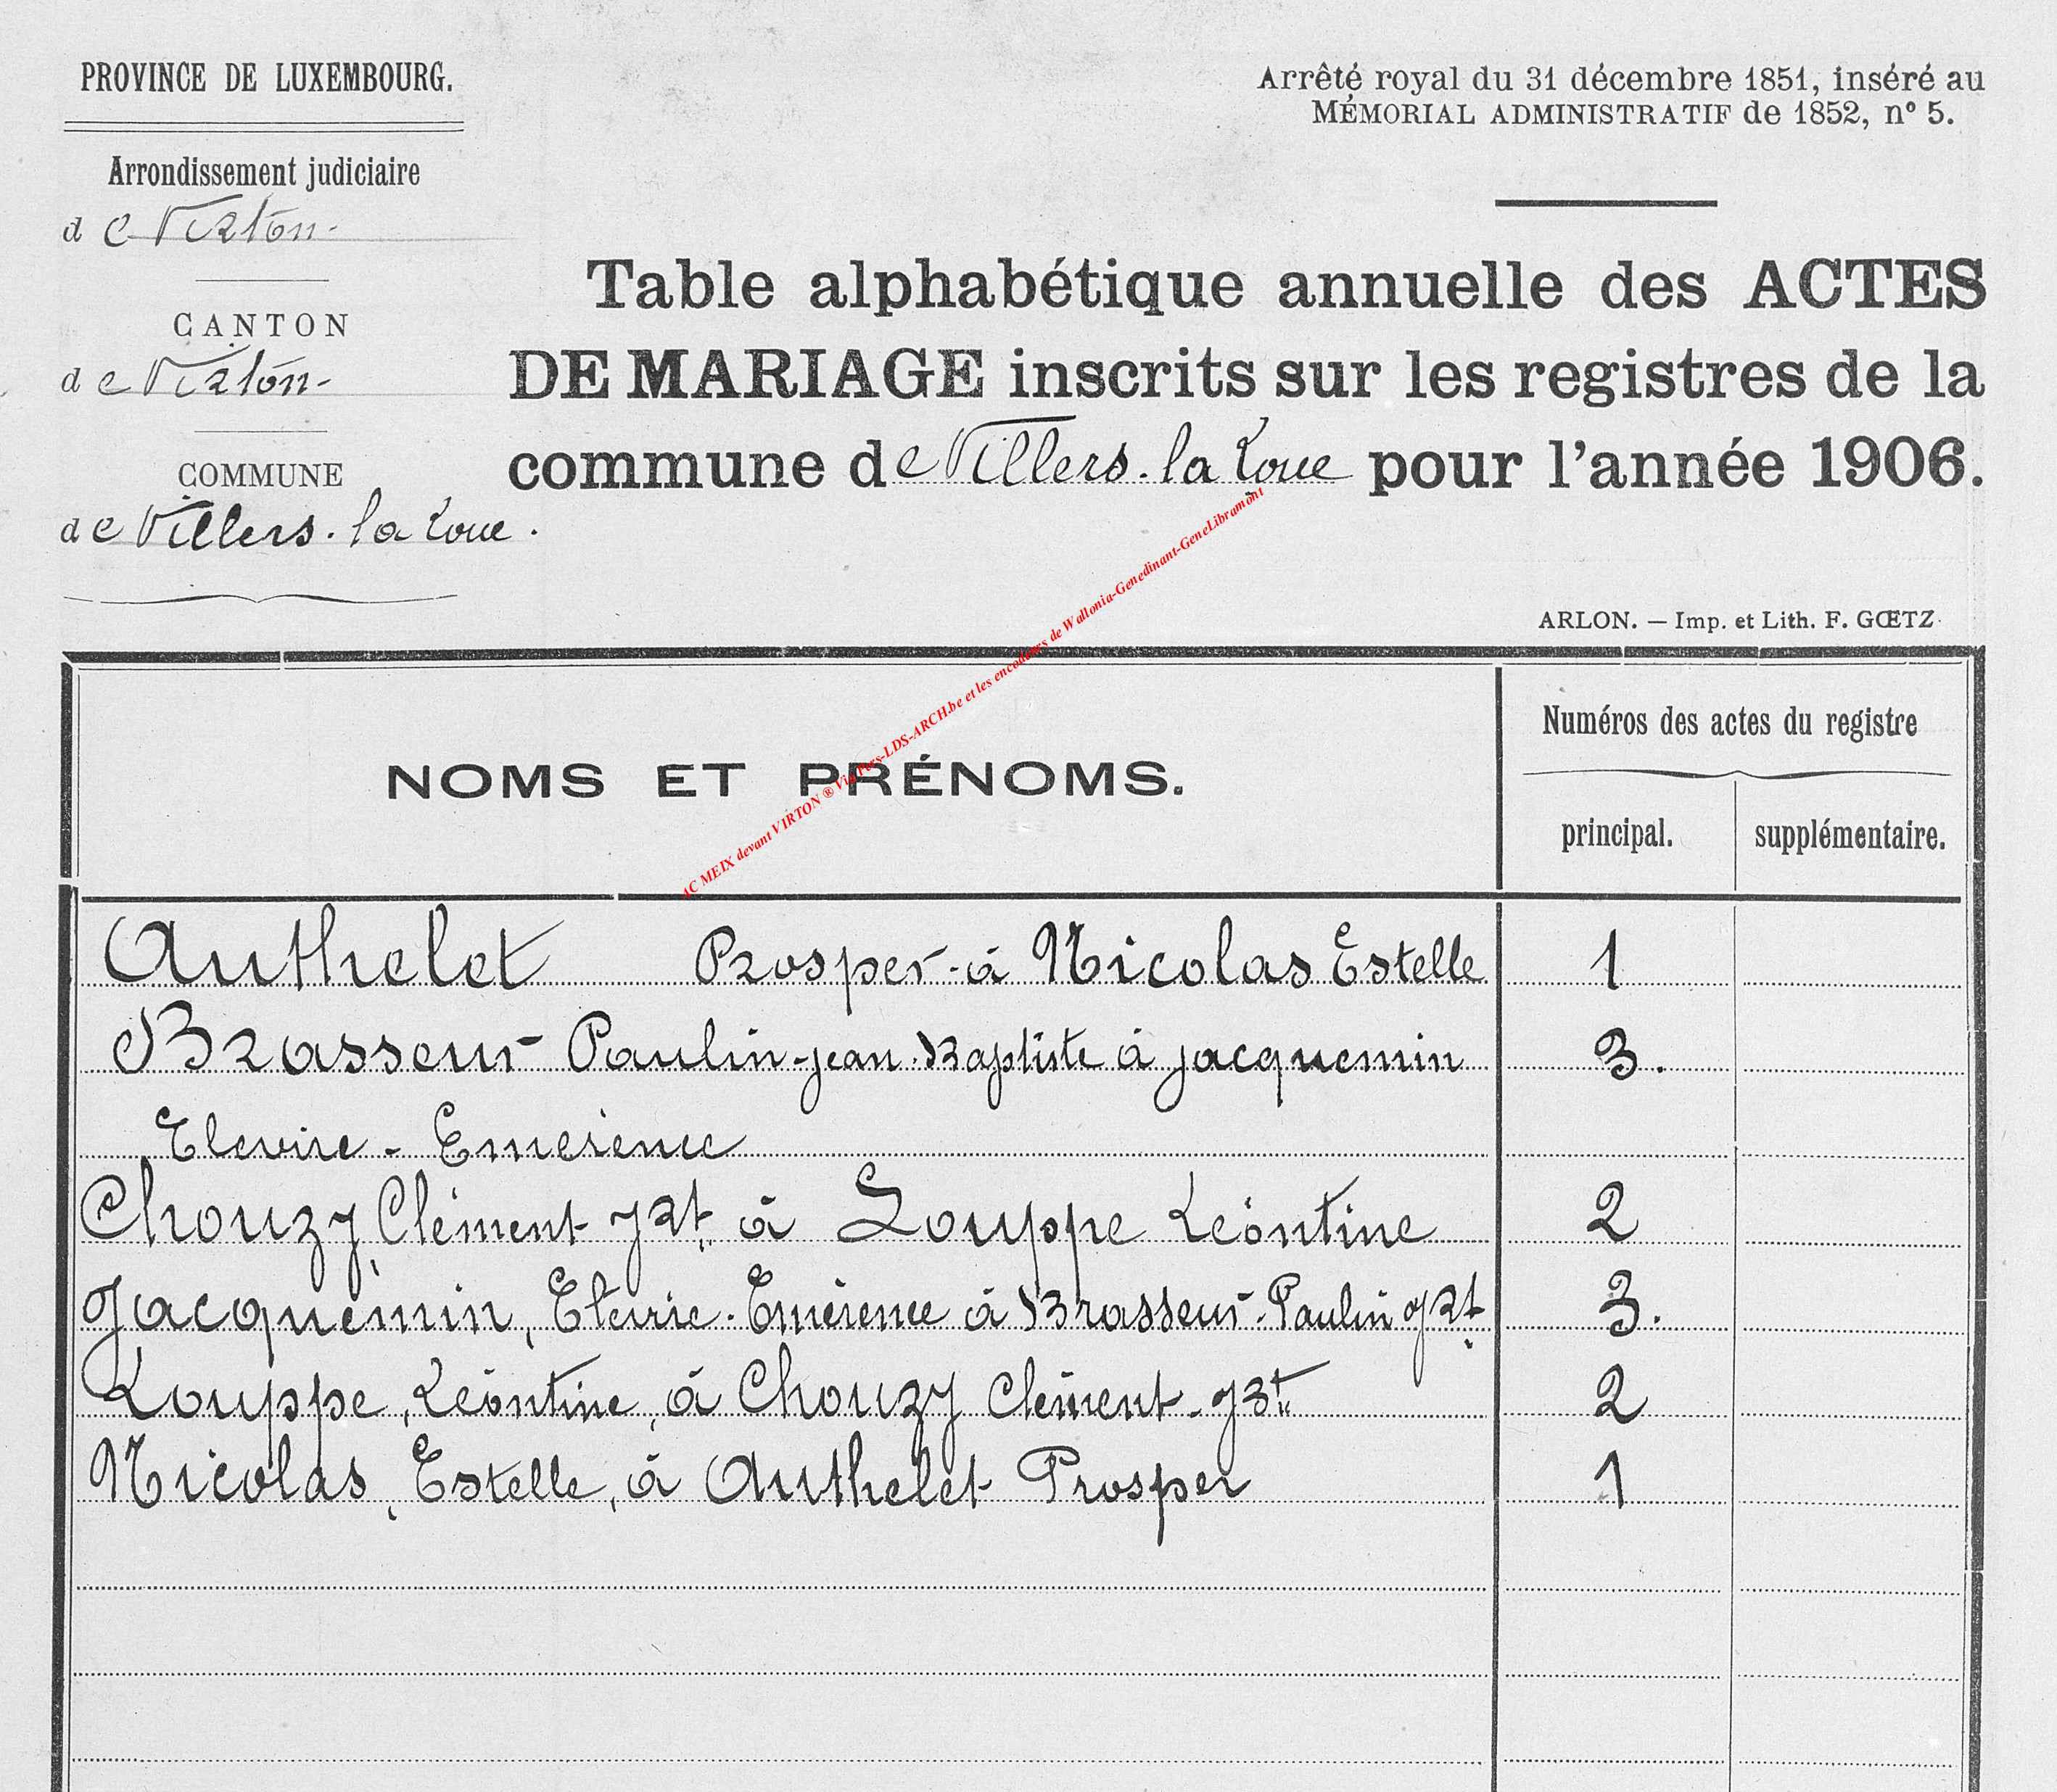 PROVINCE DE LUXEMBOURG.
Arrondissement judiciaire
de Virton-
CANTON
de Virton-
COMMUNE
de Villers-la Loue.
Arrêté royal du 31 décembre 1851, inséré au
MÉMORIAL ADMINISTRATIF de 1852, n° 5.
Table alphabétique annuelle des ACTES
DE MARIAGE inscrits sur les registres de la
commune de Villers-la Loue pour l'année 1906.
ARLON. — Imp. et Lith. F. GŒTZ
AC MEIX devant VIRTON ® Via Pers-LDS-ARCH.be et les encodeurs de Wallonia-Genedinant-GeneLibramont
NOMS ET PRÉNOMS.
Numéros des actes du registre
principal. supplémentaire.
Authelet Prosper-à Nicolas Estelle 1
Brasseur Paulin-Jean-Baptiste à Jacquemin 3.
Elevire - Emérence
Chouzy, Clément JBt à Louppe Léontine 2
Jacquemin, Elevrie-Emérence à Brasseur-Paulin JBt 3.
Louppe, Léontine, à Chouzy Clément-JBt 2
Nicolas, Estelle, à Authelet Prosper 1